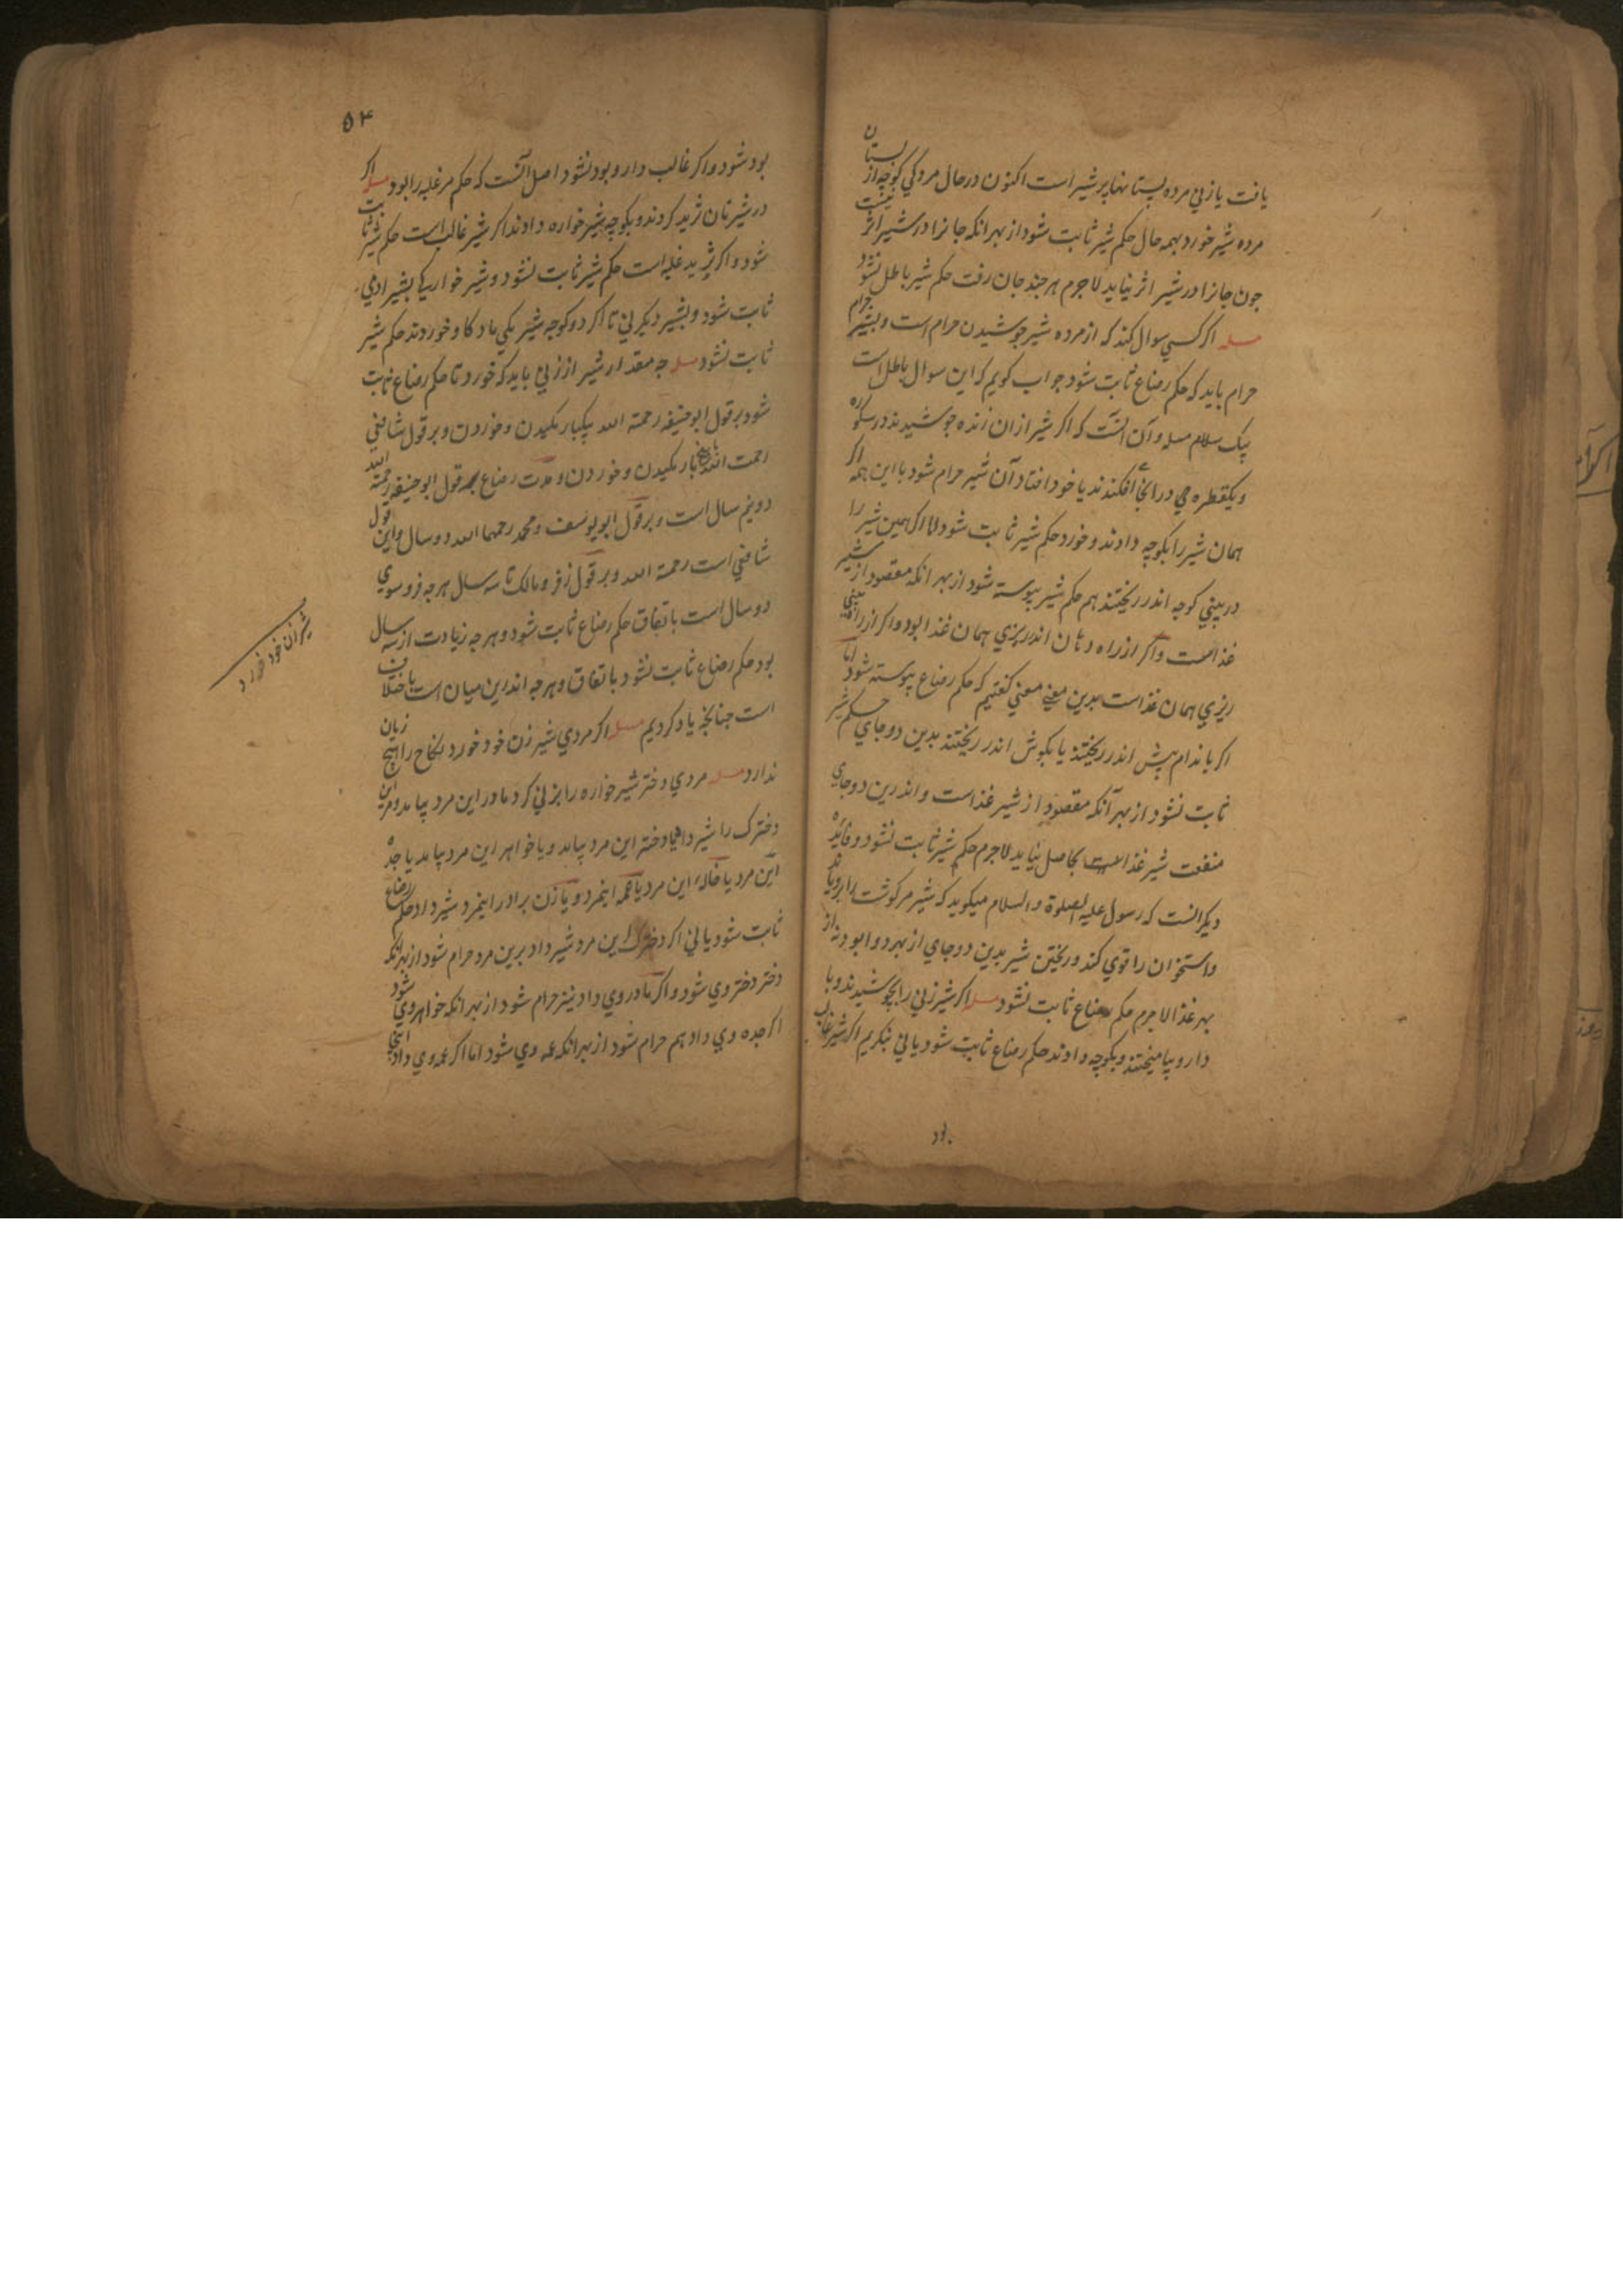 یافت یا زنی مرده پستانها پر شیر است اکنون در حال مردکی کوچه از پستان
مرده شیر خورد بهمه حال حکم شیر ثابت شود از بهر انکه جانرا در شیر اثر نیست
جون جانرا در شیر اثر نیاید لاجرم هر جند جان رفت حکم شیر باطل نشود
مسله اکر کسی سوال کند که از مرده شیر جوشیدن حرام است و بشیر حرام
حرام باید که حکم رضاع ثابت شود جواب کویم که این سوال باطل است
بیک سلام مسله و آن انست که اکر شیر از ان زنده جوشیدند در سکوره
ویکقطره می در انجا افکندند یا خود افتاد آن شیر حرام شود با این همه اکر
همان شیر را بکوچه دادند و خورد حکم شیر ثابت شود اما اکر همین شیر را
در بینی کوچه اندر ریختند هم حکم شیر پیوسته شود از بهر انکه مقصود از شیر
غذاست واکر از راه دهان اندر ریزی همان غذا بود واکر از راه بینی
ریزی همان غذاست بدین معنی کفتیم که حکم رضاع پیوسته شود اما
اکر باندام پیش اندر ریختند یا بکوش اندر ریختند بدین دو جای حکم شیر
ثابت نشود از بهر آنکه مقصود از شیر غذاست و اندرین دو جای
منفعت شیر غذاست بحاصل نیاید لاجرم حکم شیر ثابت نشود و فایده
دیکر انست که رسول علیه الصلوة والسلام میکوید که شیر مر کوشت را برویاند
واستخوان را قوی کند و ریختن شیر بدین دو جای از بهر دوا بود نه از
بهر غذا لاجرم حکم رضاع ثابت نشود مسله اکر شیر زنی را بجوشیدند و با
دارو بیامیختند و بکوچه دادند حکم رضاع ثابت شود یا نی بنکریم اکر شیر غالب
بود
۵۴
بود شود واکر غالب دارو بود نشود اصل آنست که حکم مر غلبه را بود مسله اکر
در شیر نان ثرید کردند و بکوچه شیر خواره دادند اکر شیر غالب است حکم شیر ثابت
شود واکر ثرید غلبه است حکم شیر ثابت نشود و شیر خوارکی بشیر ادمی
ثابت شود و بشیر دیکر نی تا اکر دو کوچه شیر یکی ماده کاو خوردند حکم شیر
ثابت نشود مسله جه مقدار شیر از زنی باید که خورد تا حکم رضاع ثابت
شود بر قول ابو حنیفه رحمة الله یکبار مکیدن و خوردن و بر قول شافعی
رحمت الله پنج بار مکیدن و خوردن و مدت رضاع بر قول ابو حنیفه رحمة الله
دو نیم سال است و بر قول ابو یوسف و محمد رحمهما الله دو سال و این قول
شافعی است رحمة الله و بر قول زفر و مالک تا سه سال هر جه فرو سوی
دو سال است باتفاق حکم رضاع ثابت شود و هر جه زیادت از سه سال
بود حکم رضاع ثابت نشود باتفاق و هر جه اندرین میان است باختلاف
است جنانجه یاد کردیم مسله اکر مردی شیر زن خود خورد نکاح را هیچ زیان
ندارد مسله مردی دختر شیر خواره را بزنی کرد مادر این مرد بیامد و مر این
دخترک را شیر داد یا دختر این مرد بیامد و یا خواهر این مرد بیامد یا جده
این مرد یا خاله این مرد یا عمه اینمرد و یا زن برادر اینمرد شیر داد حکم رضاع
ثابت شود یا نی اکر دخترک این مرد شیر داد برین مرد حرام شود از بهر انکه
دختر دختر وی شود واکر مادر وی داد نیز حرام شود از بهر انکه خواهر وی شود
اکر جده وی داد هم حرام شود از بهر انکه عمه وی شود اما اکر عمه وی داد
شیر زن خود خورد